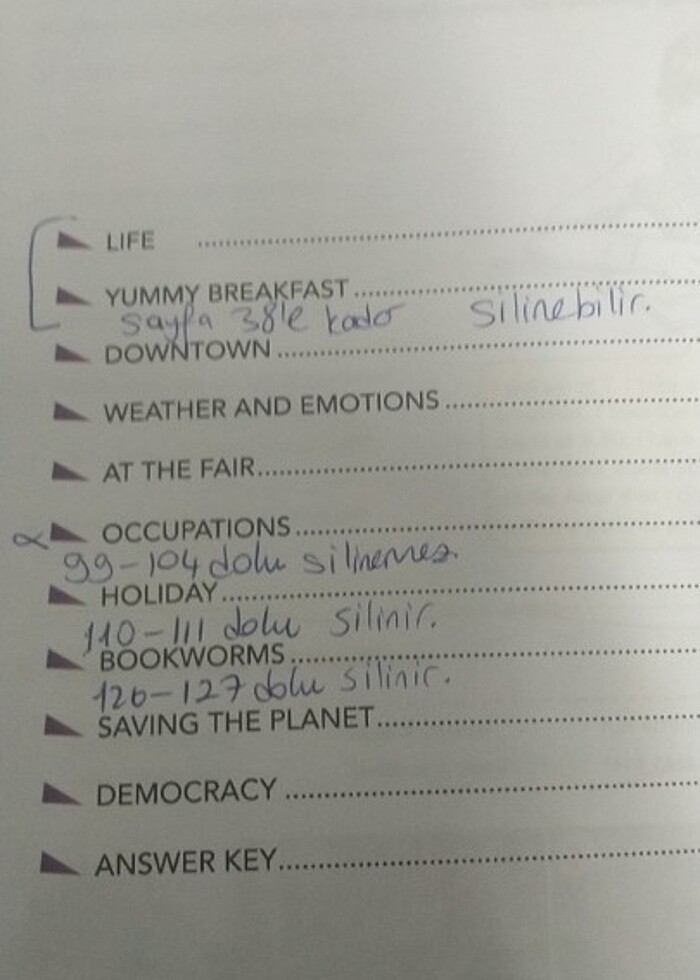 LIFE ....................
YUMMY BREAKFAST ....................
sayfa 38'e kadar silinebilir.
DOWNTOWN ....................
WEATHER AND EMOTIONS ....................
AT THE FAIR ....................
OCCUPATIONS ....................
99-104 dolu silinemez.
HOLIDAY ....................
110-111 dolu silinir.
BOOKWORMS ....................
126-127 dolu silinir.
SAVING THE PLANET ....................
DEMOCRACY ....................
ANSWER KEY ....................